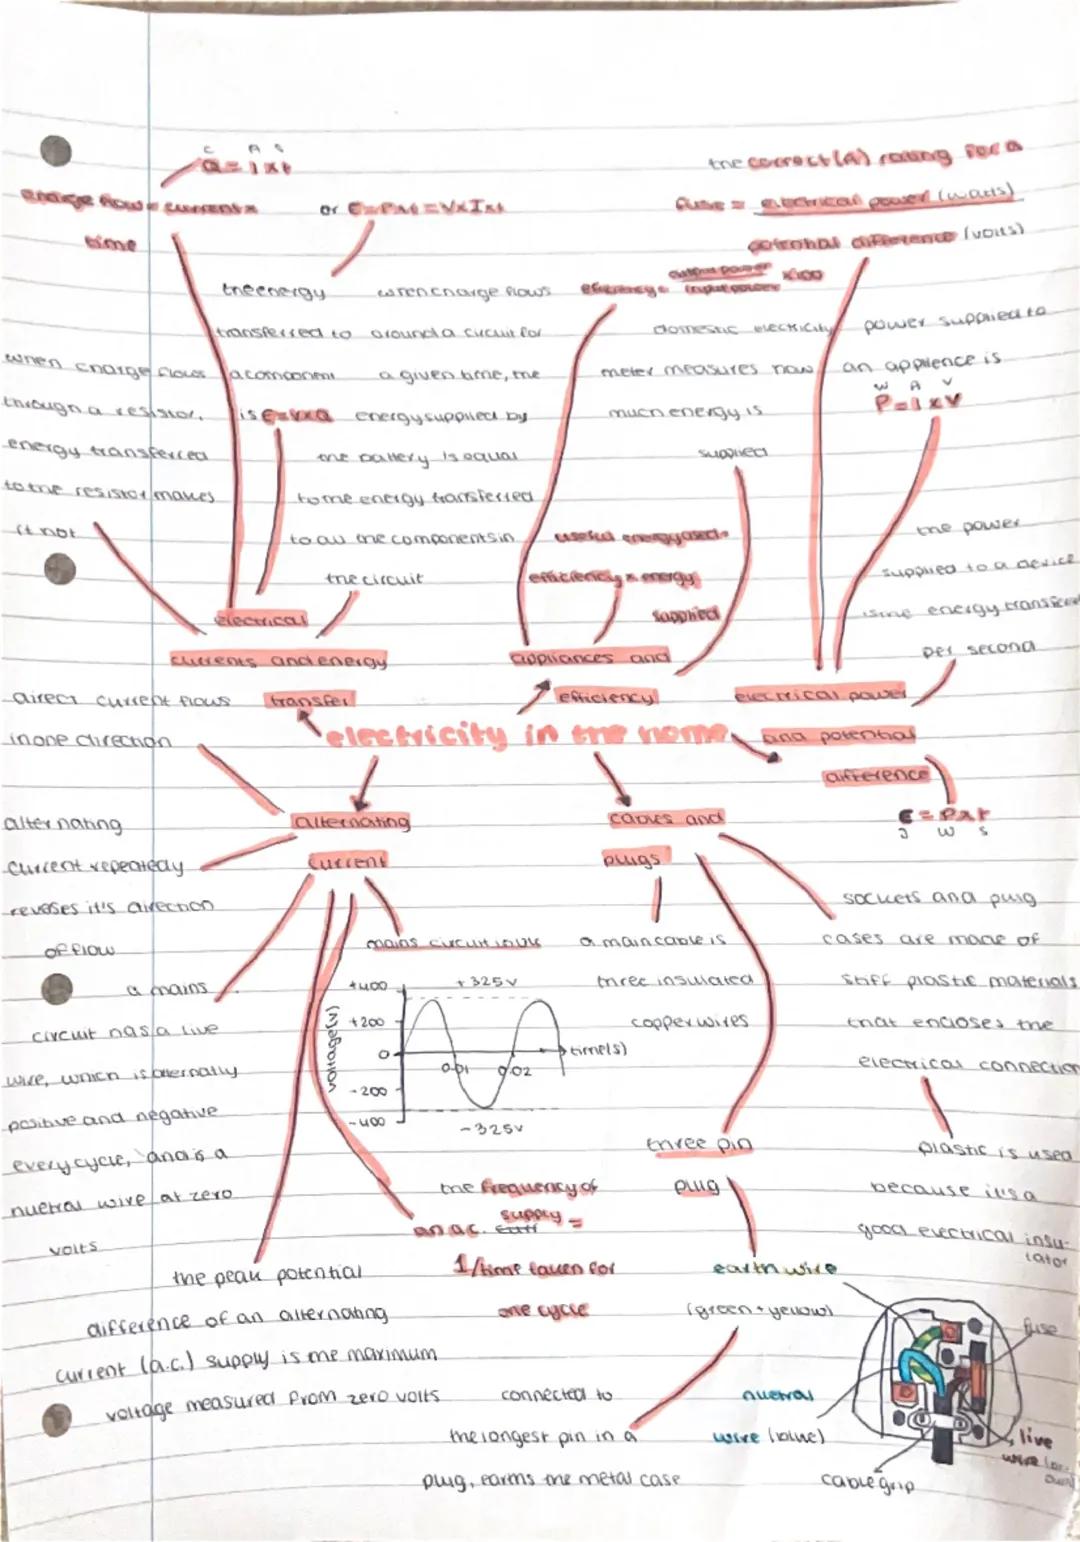 C A S
Q = I x t
charge flow = current x
time
or E=Pxt=VxIxt
the energy
transferred to
a component
is E=VxQ
when charge flows
around a circuit for
a given time, the
energy supplied by
the battery is equal
to the energy transferred
to all the components in
the circuit
when charge flows
through a resistor,
energy transferred
to the resistor makes
it hot
electrical
currents and energy
transfer
the correct (A) rating for a
fuse = electrical power (watts)
potential difference (volts)
efficiency = output power x100
input power
domestic electricity
meter measures how
much energy is
supplied
useful energy used =
efficiency x energy
supplied
appliances and
efficiency
power supplied to
an applience is
W A V
P=IxV
the power
supplied to a device
is the energy transfered
per second
electrical power
and potential
difference
E = Pxt
J W S
electricity in the home
direct current flows
in one direction
alternating
current repeatedly
reveses it's direction
of flow
alternating
current
a mains
circuit has a live
wire, which is alternally
positive and negative
every cycle, and is a
nuetral wire at zero
volts
mains circuit
voltage(v)
+400
+200
0
-200
-400
+325v
0.01
0.02
time(s)
-325v
the frequency of
an a.c. supply =
1/time taken for
one cycle
the peak potential
difference of an alternating
current (a.c.) supply is the maximum
voltage measured from zero volts
cables and
plugs
a main cable is
three insulated
copper wires
sockets and plug
cases are made of
stiff plastic materials
that encloses the
electrical connection
plastic is used
because it's a
good electrical insu-
lator
three pin
plug
earth wire
(green+yellow)
connected to
the longest pin in a
plug, earths the metal case
nuetral
wire (blue)
cable grip
fuse
live
wire